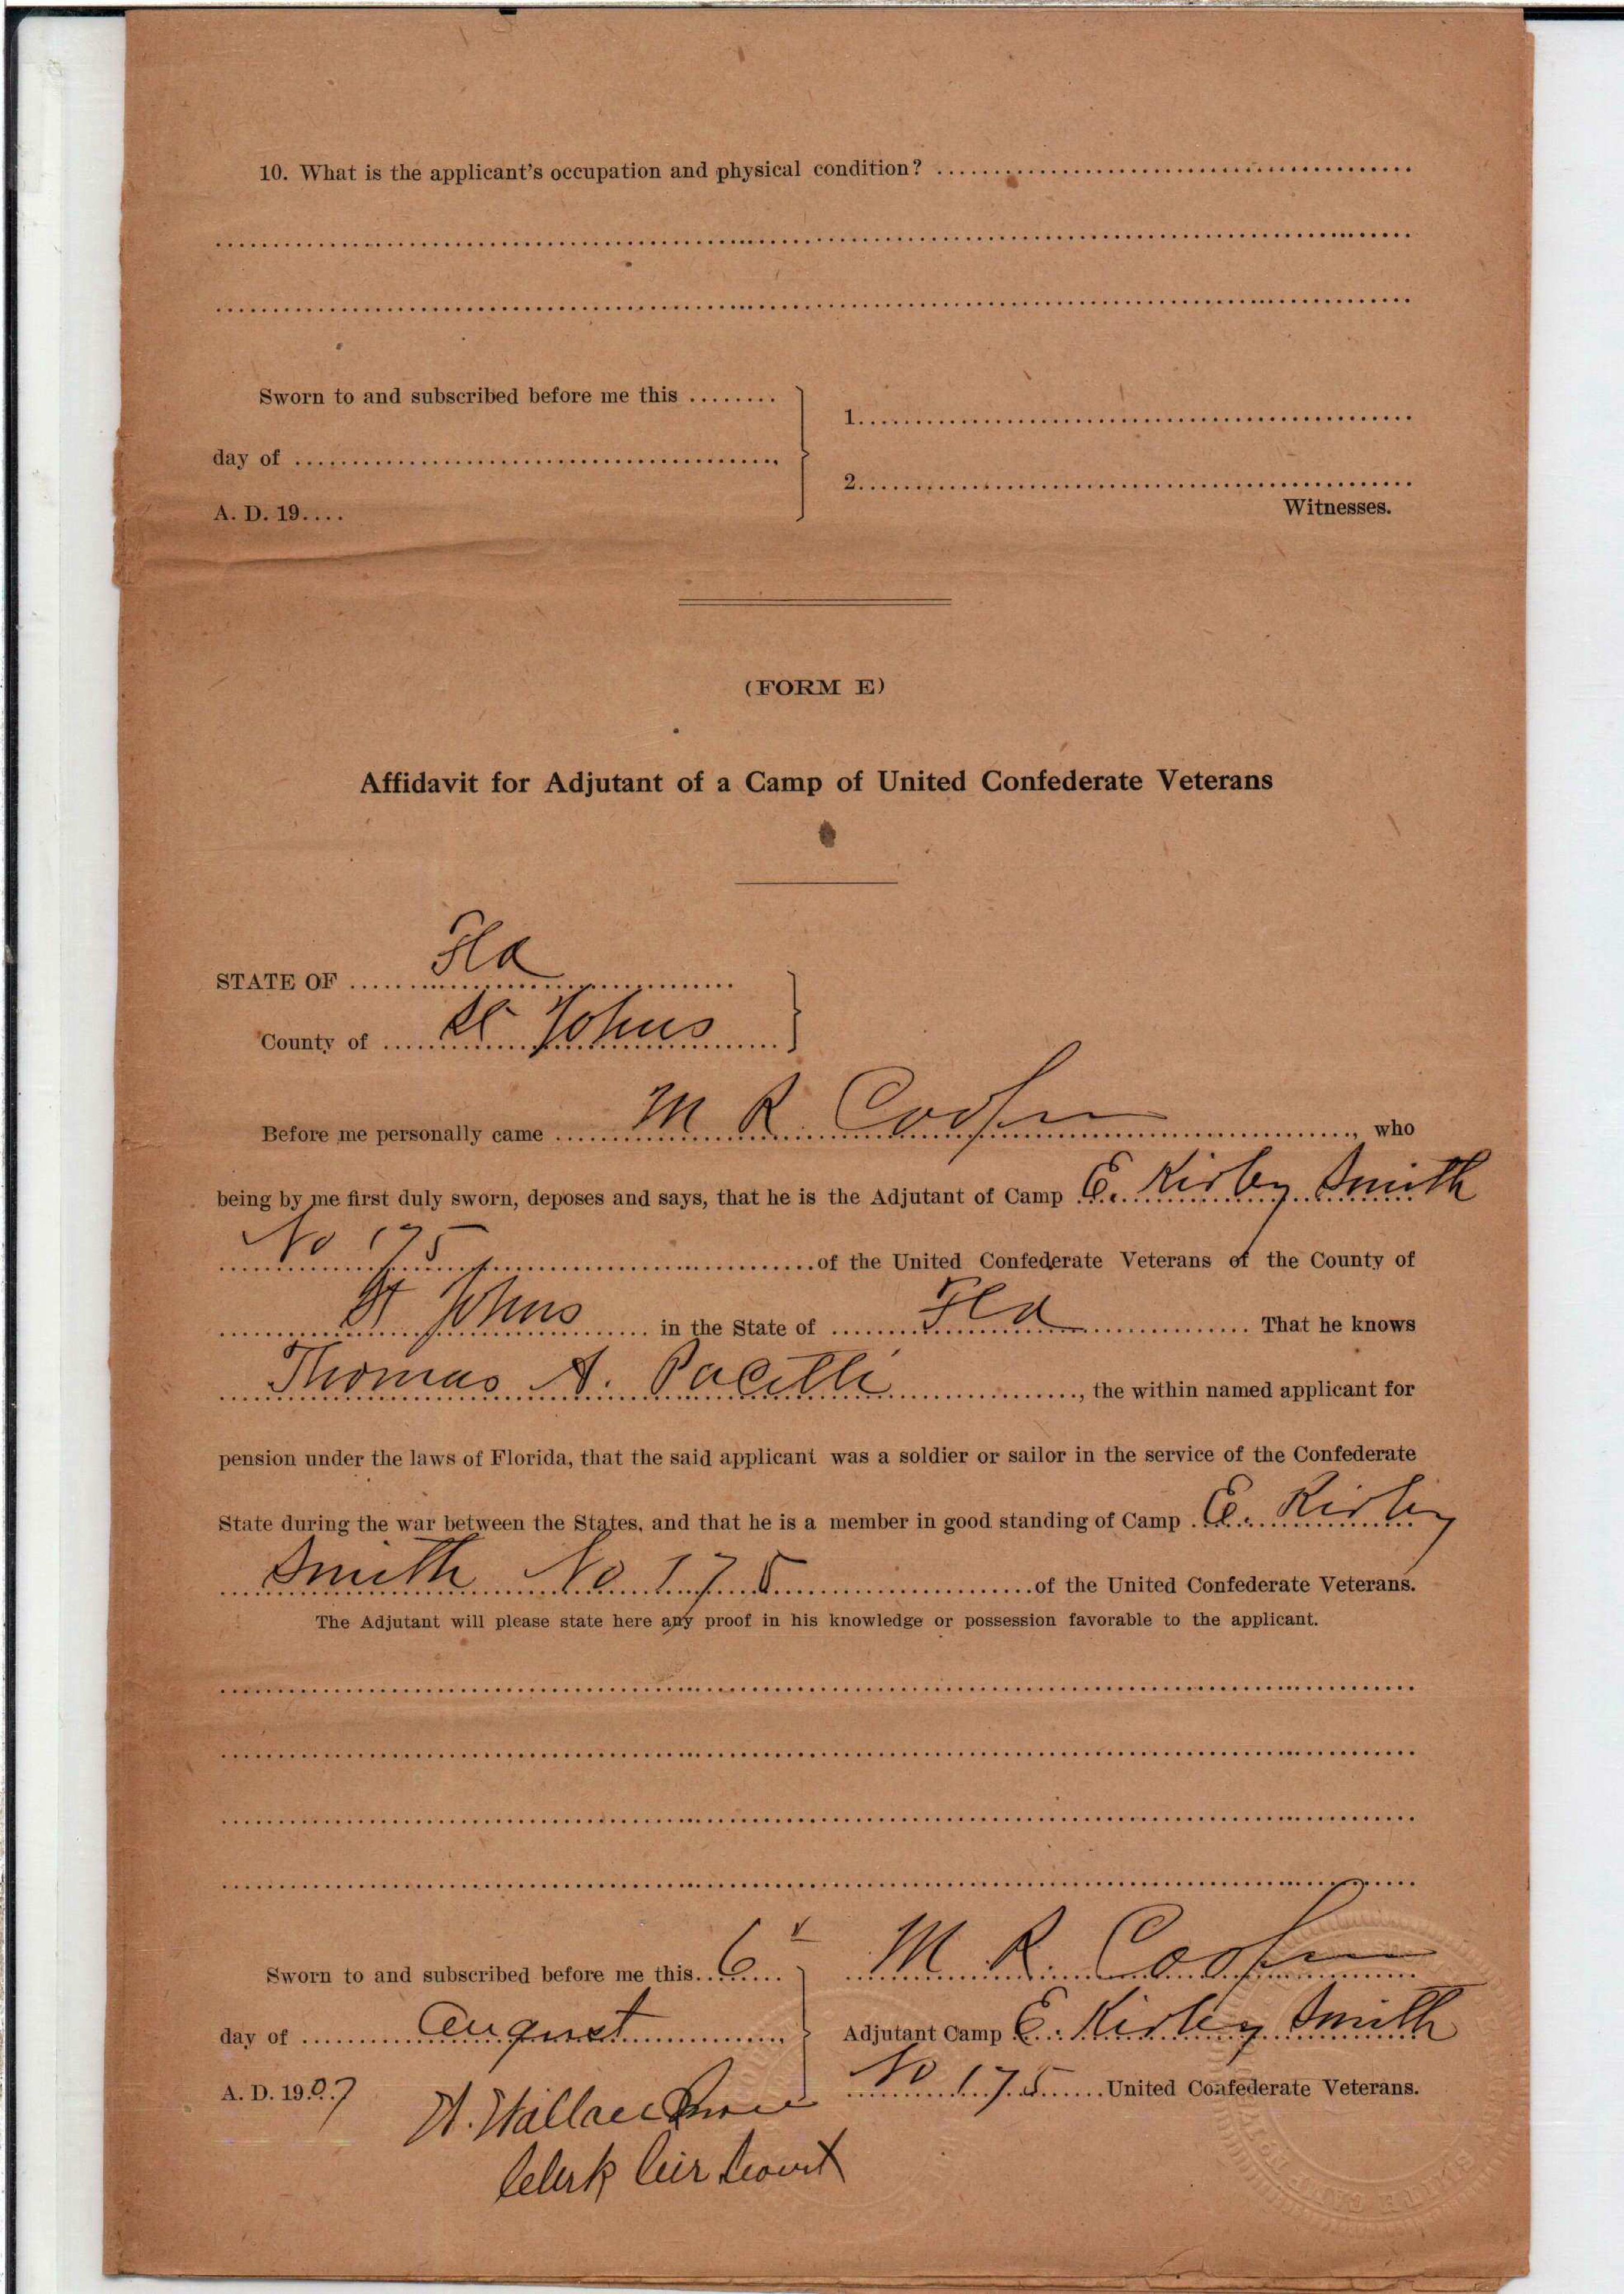 10. What is the applicant's occupation and physical condition? ........
Sworn to and subscribed before me this ........
day of ........,
A. D. 19....
1.........
2.........
Witnesses.
(FORM E)
Affidavit for Adjutant of a Camp of United Confederate Veterans
STATE OF Fla
County of St Johns
Before me personally came M R , who
being by me first duly sworn, deposes and says, that he is the Adjutant of Camp E. Kirby Smith
No 175 of the United Confederate Veterans of the County of
St Johns in the State of Fla That he knows
Thomas A. Pacetti, the within named applicant for
pension under the laws of Florida, that the said applicant was a soldier or sailor in the service of the Confederate
State during the war between the States, and that he is a member in good standing of Camp E. Kirby
Smith No 175 of the United Confederate Veterans.
The Adjutant will please state here any proof in his knowledge or possession favorable to the applicant.
Sworn to and subscribed before me this 6"
day of August
A. D. 1907
M R
Adjutant Camp E. Kirby Smith
No 175 United Confederate Veterans.
Wallace
Clerk Cir Court